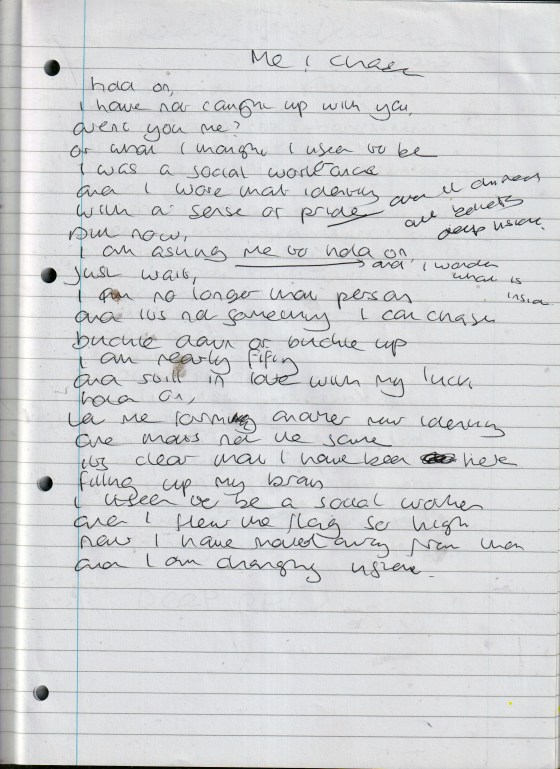 Me I chase
hold on,
I have not caught up with you,
arent you me?
or what I thought I used to be
I was a social worker once
and I wore that identity
with a sense of pride
and it
all
deep inside.
but now,
I am asking me to hold on,
and I wonder
what is
inside
Just wait,
I am no longer that person
and its not something I can chase
buckle down or buckle up
I am nearly fifty
and still in love with my luck,
hold on,
Let me another new identity
one thats not the same
its clear that I have been here
filling up my brain
I used to be a social worker
and I flew the flag so high
now I have moved away from that
and I am changing inside.